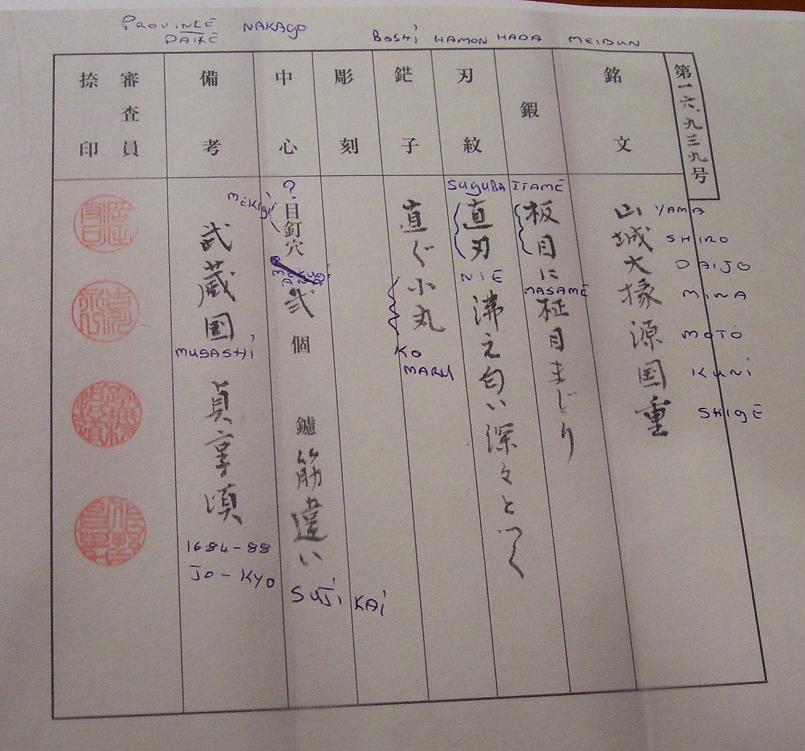 PROVINCE
DATE
NAKAGO
BOSHI
HAMON
HADA
MEIBUN
第一六、九三九号
銘文
山城大掾源国重
YAMA
SHIRO
DAIJO
MINA
MOTO
KUNI
SHIGE
鍜
ITAME
板目に
MASAME
柾目まじり
刃紋
SUGUBA
直刃
NIE
沸え匂い深々とつく
鋩子
直ぐ小丸
KO
MARU
彫刻
中心
?
MEKUGI
目釘穴
弐個
鑢
筋違い
SUJI KAI
備考
武蔵国
MUSASHI
貞享頃
1684-88
JO-KYO
審査員
捺印